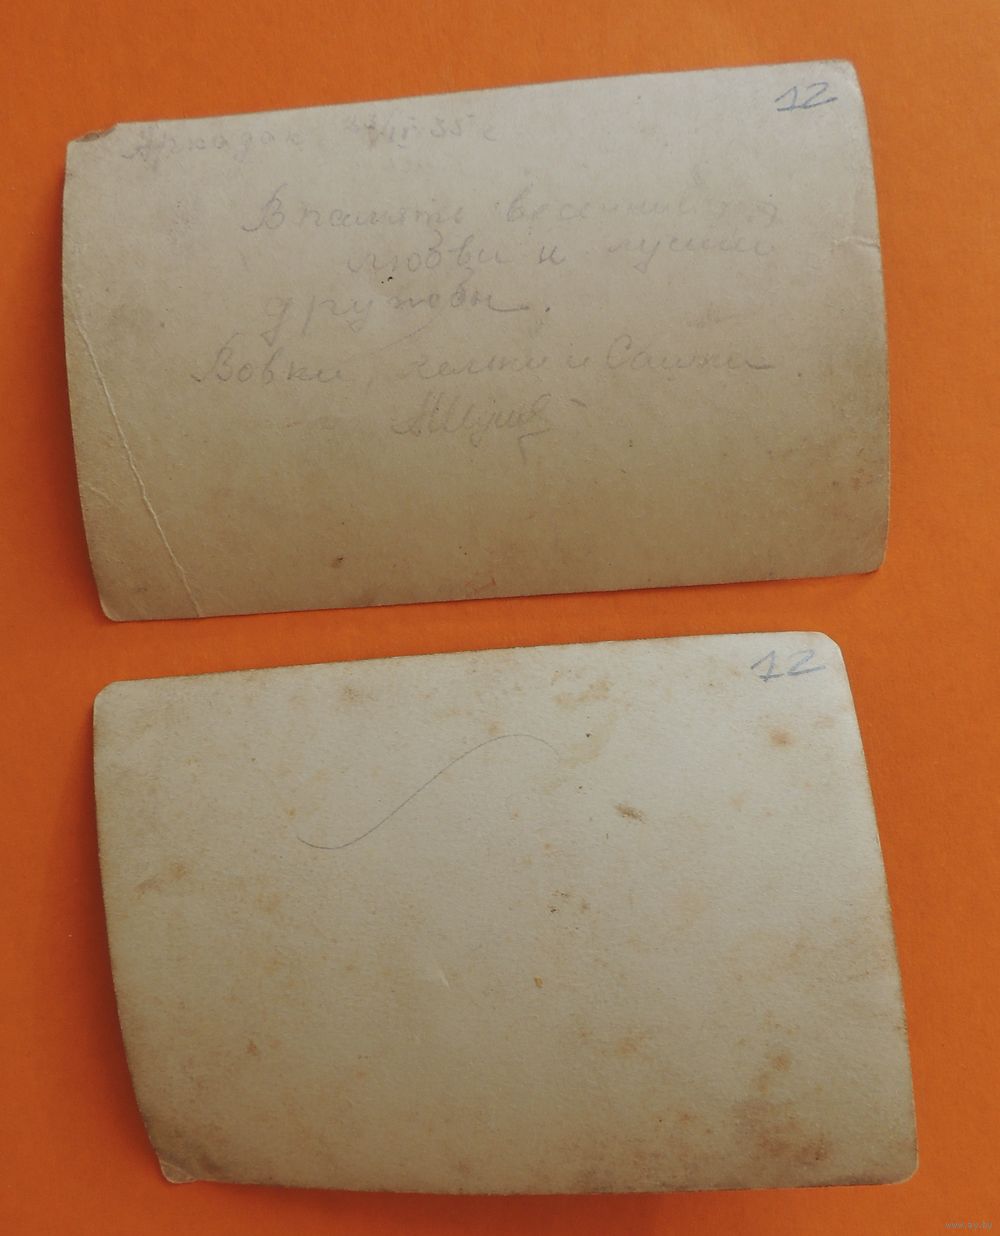 12
Аркадак 35 г
В память весенний
любви и лучшей
дружбы.
Вовки, и Сашки
12
www.ay.by